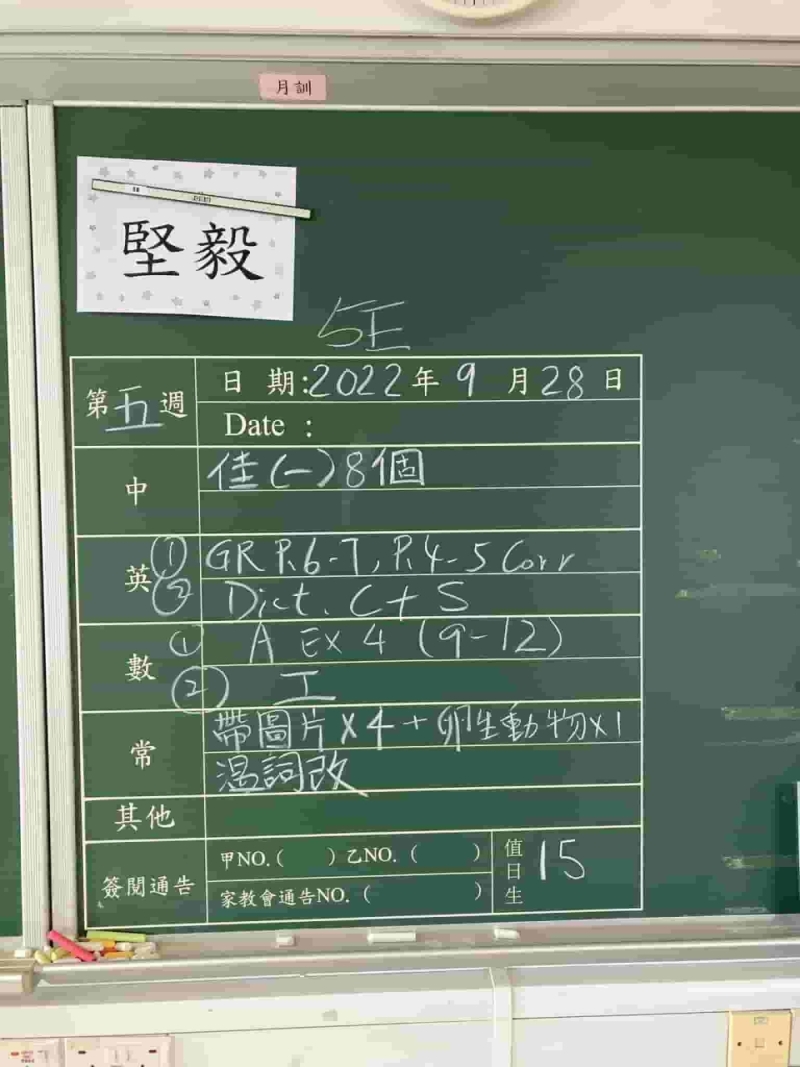 月訓
堅毅
5E
第五週
日期:2022年9月28日
Date :
中
佳(一)8個
英
① GR P.6-7, P.4-5 Corr
② Dict. C + S
數
① A EX 4 (9-12)
② 工
常
帶圖片×4+卵生動物×1
溫詞改
其他
簽閱通告
甲NO.( )乙NO.( )
家教會通告NO.( )
值日生 15